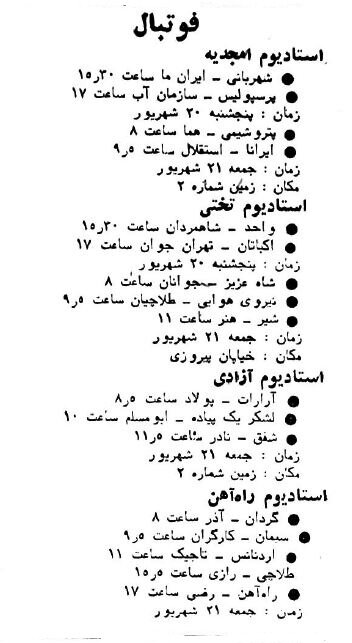 فوتبال
استادیوم امجدیه
● شهربانی - ایران ما ساعت ۱۵٫۳۰
● پرسپولیس - سازمان آب ساعت ۱۷
زمان : پنجشنبه ۲۰ شهریور
● پتروشیمی - هما ساعت ۸
● ایرانا - استقلال ساعت ۹٫۵
زمان : جمعه ۲۱ شهریور
مکان : زمین شماره ۲
استادیوم تختی
● واحد - شاهمردان ساعت ۱۵٫۳۰
● اکباتان - تهران جوان ساعت ۱۷
زمان : پنجشنبه ۲۰ شهریور
● شاه عزیز - جوانان ساعت ۸
● نیروی هوایی - طلاچیان ساعت ۹٫۵
● شیر - هنر ساعت ۱۱
زمان : جمعه ۲۱ شهریور
مکان : خیابان پیروزی
استادیوم آزادی
● آرارات - پولاد ساعت ۸٫۵
● لشکر یک پیاده - ابومسلم ساعت ۱۰
● شفق - نادر ساعت ۱۱٫۵
زمان : جمعه ۲۱ شهریور
مکان : زمین شماره ۲
استادیوم راه‌آهن
● گردان - آذر ساعت ۸
● سیمان - کارگران ساعت ۹٫۵
● اردنانس - تاجیک ساعت ۱۱
طلاچی - رازی ساعت ۱۵٫۵
● راه‌آهن - رضی ساعت ۱۷
زمان : جمعه ۲۱ شهریور